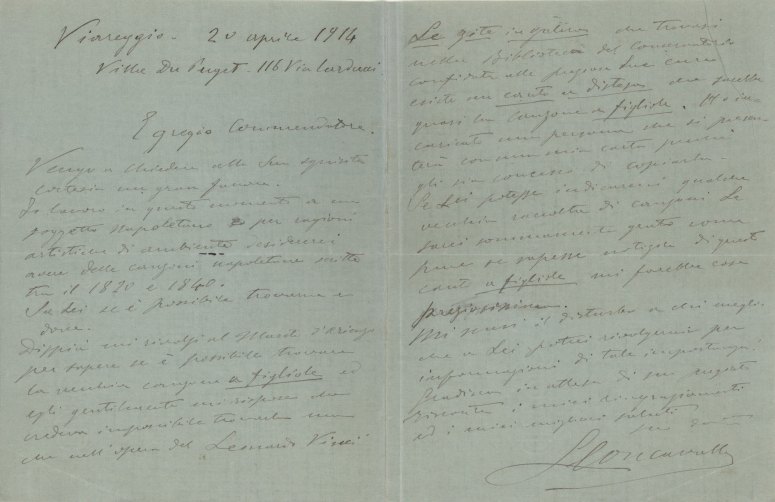 Viareggio - 20 aprile 1914
Villa Du Puget - 116 Via Carducci
Egregio Commendatore.
Vengo a chiedere alla Sua squisita
cortesia un gran favore.
Io lavoro in questo momento a un
soggetto Napoletano e per ragioni
artistiche di ambiente desidererei
avere delle canzoni napoletane scritte
tra il 1820 e 1840.
Sa Lei se è possibile trovarne e
dove.
mi rivolsi al Maestro d'Arienzo
per sapere se è possibile trovare
la vecchia canzone a figliole ed
egli gentilmente mi rispose che
credeva impossibile trovarla meno
che nell'opera del Leonardo Vinci
Le zite in galera che trovasi
nella Biblioteca del Conservatorio
confidata alle Sue cure
esiste un canto a distesa che sarebbe
quasi la canzone a figliole. Ho in-
caricato una persona che si presen-
terà con una mia carta perché
gli sia concesso di copiarla.
Se Lei potesse indicarmi qualche
vecchia raccolta di canzoni Le
sarei sommamente grato come
pure se sapesse notizie di questo
canto a figliole mi farebbe cosa
preziosissima.
Mi scusi il disturbo a chi meglio
che a Lei potrei rivolgermi per
informazioni di tale importanza;
Gradisca in attesa di un pregiato
riscontro i miei ringraziamenti
ed i miei migliori saluti
RLeoncavallo